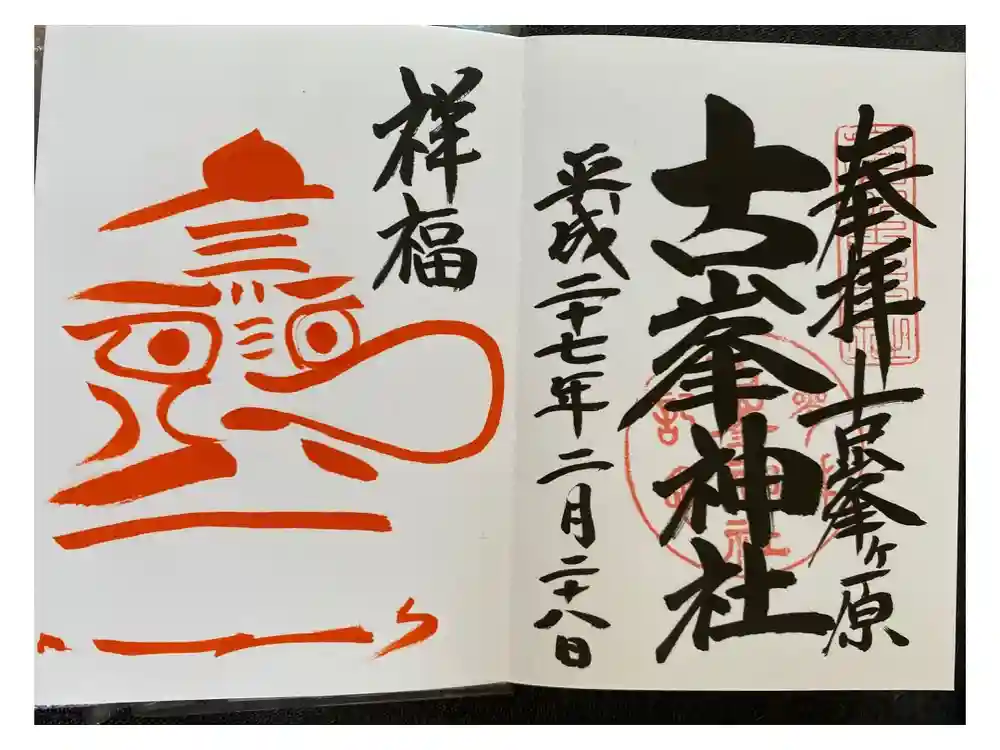 奉拝 古峯ヶ原
古峯神社
平成二十七年二月二十八日
祥福